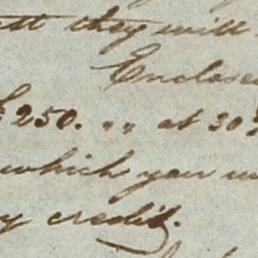 they will
Enclosed
£250. " at 30
which you
credit.